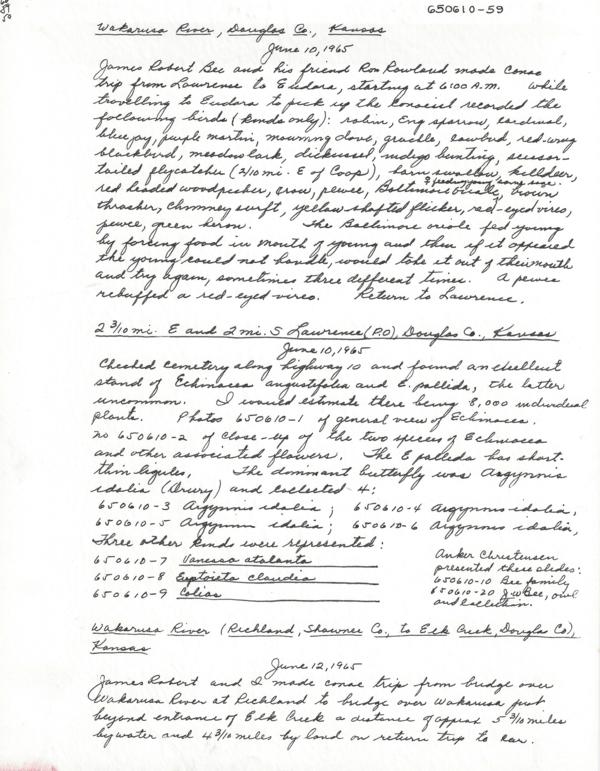 650610-59
Wakarusa River, Douglas Co., Kansas
June 10, 1965
James Robert Bee and his friend Ron Rowland made canoe
trip from Lawrence to Eudora, starting at 6:00 A.M. While
travelling to Eudora to pick up the canoeist recorded the
following birds (kinds only): robin, Eng sparrow, cardinal,
blue jay, purple martin, mourning dove, grackle, cowbird, red-wing
blackbird, meadowlark, dickcissel, indigo bunting, scissor-
tailed flycatcher (2/10 mi. E of Coop), barn swallow, killdeer,
red headed woodpecker, crow, pewee, Baltimore Oriole, brown
thrasher, chimney swift, yellow-shafted flicker, red-eyed vireo,
pewee, green heron. The Baltimore oriole fed young
by forcing food in mouth of young and then if it appeared
the young could not handle, would take it out of their mouth
and try again, sometimes three different times. A pewee
rebuffed a red-eyed vireo. Return to Lawrence.
2 3/10 mi. E and 2 mi. S Lawrence (P.O), Douglas Co., Kansas
June 10, 1965
Checked cemetery along highway 10 and found an excellent
stand of Echinacea angustifolia and E. pallida, the latter
uncommon. I would estimate there being 8,000 individual
plants. Photos 650610-1 of general view of Echinacea.
no 650610-2 of close-up of the two species of Echinacea
and other associated flowers. The E pallida has short-
thin ligules. The dominant butterfly was Argynnis
idalia (Drury) and collected 4:
650610-3 Argynnis idalia; 650610-4 Argynnis idalia,
650610-5 Argynnis idalia; 650610-6 Argynnis idalia,
Three other kinds were represented:
650610-7 Vanessa atalanta
650610-8 Euptoieta claudia
650610-9 Colias
Anker Christensen
presented these slides:
650610-10 Bee family
650610-20 J W Bee, owl
and collection.
Wakarusa River (Richland, Shawnee Co., to Elk Creek, Douglas Co),
Kansas
June 12, 1965
James Robert and I made canoe trip from bridge over
Wakarusa River at Richland to bridge over Wakarusa just
beyond entrance of Elk Creek a distance of approx 5 3/10 miles
by water and 4 3/10 miles by land on return trip to car.